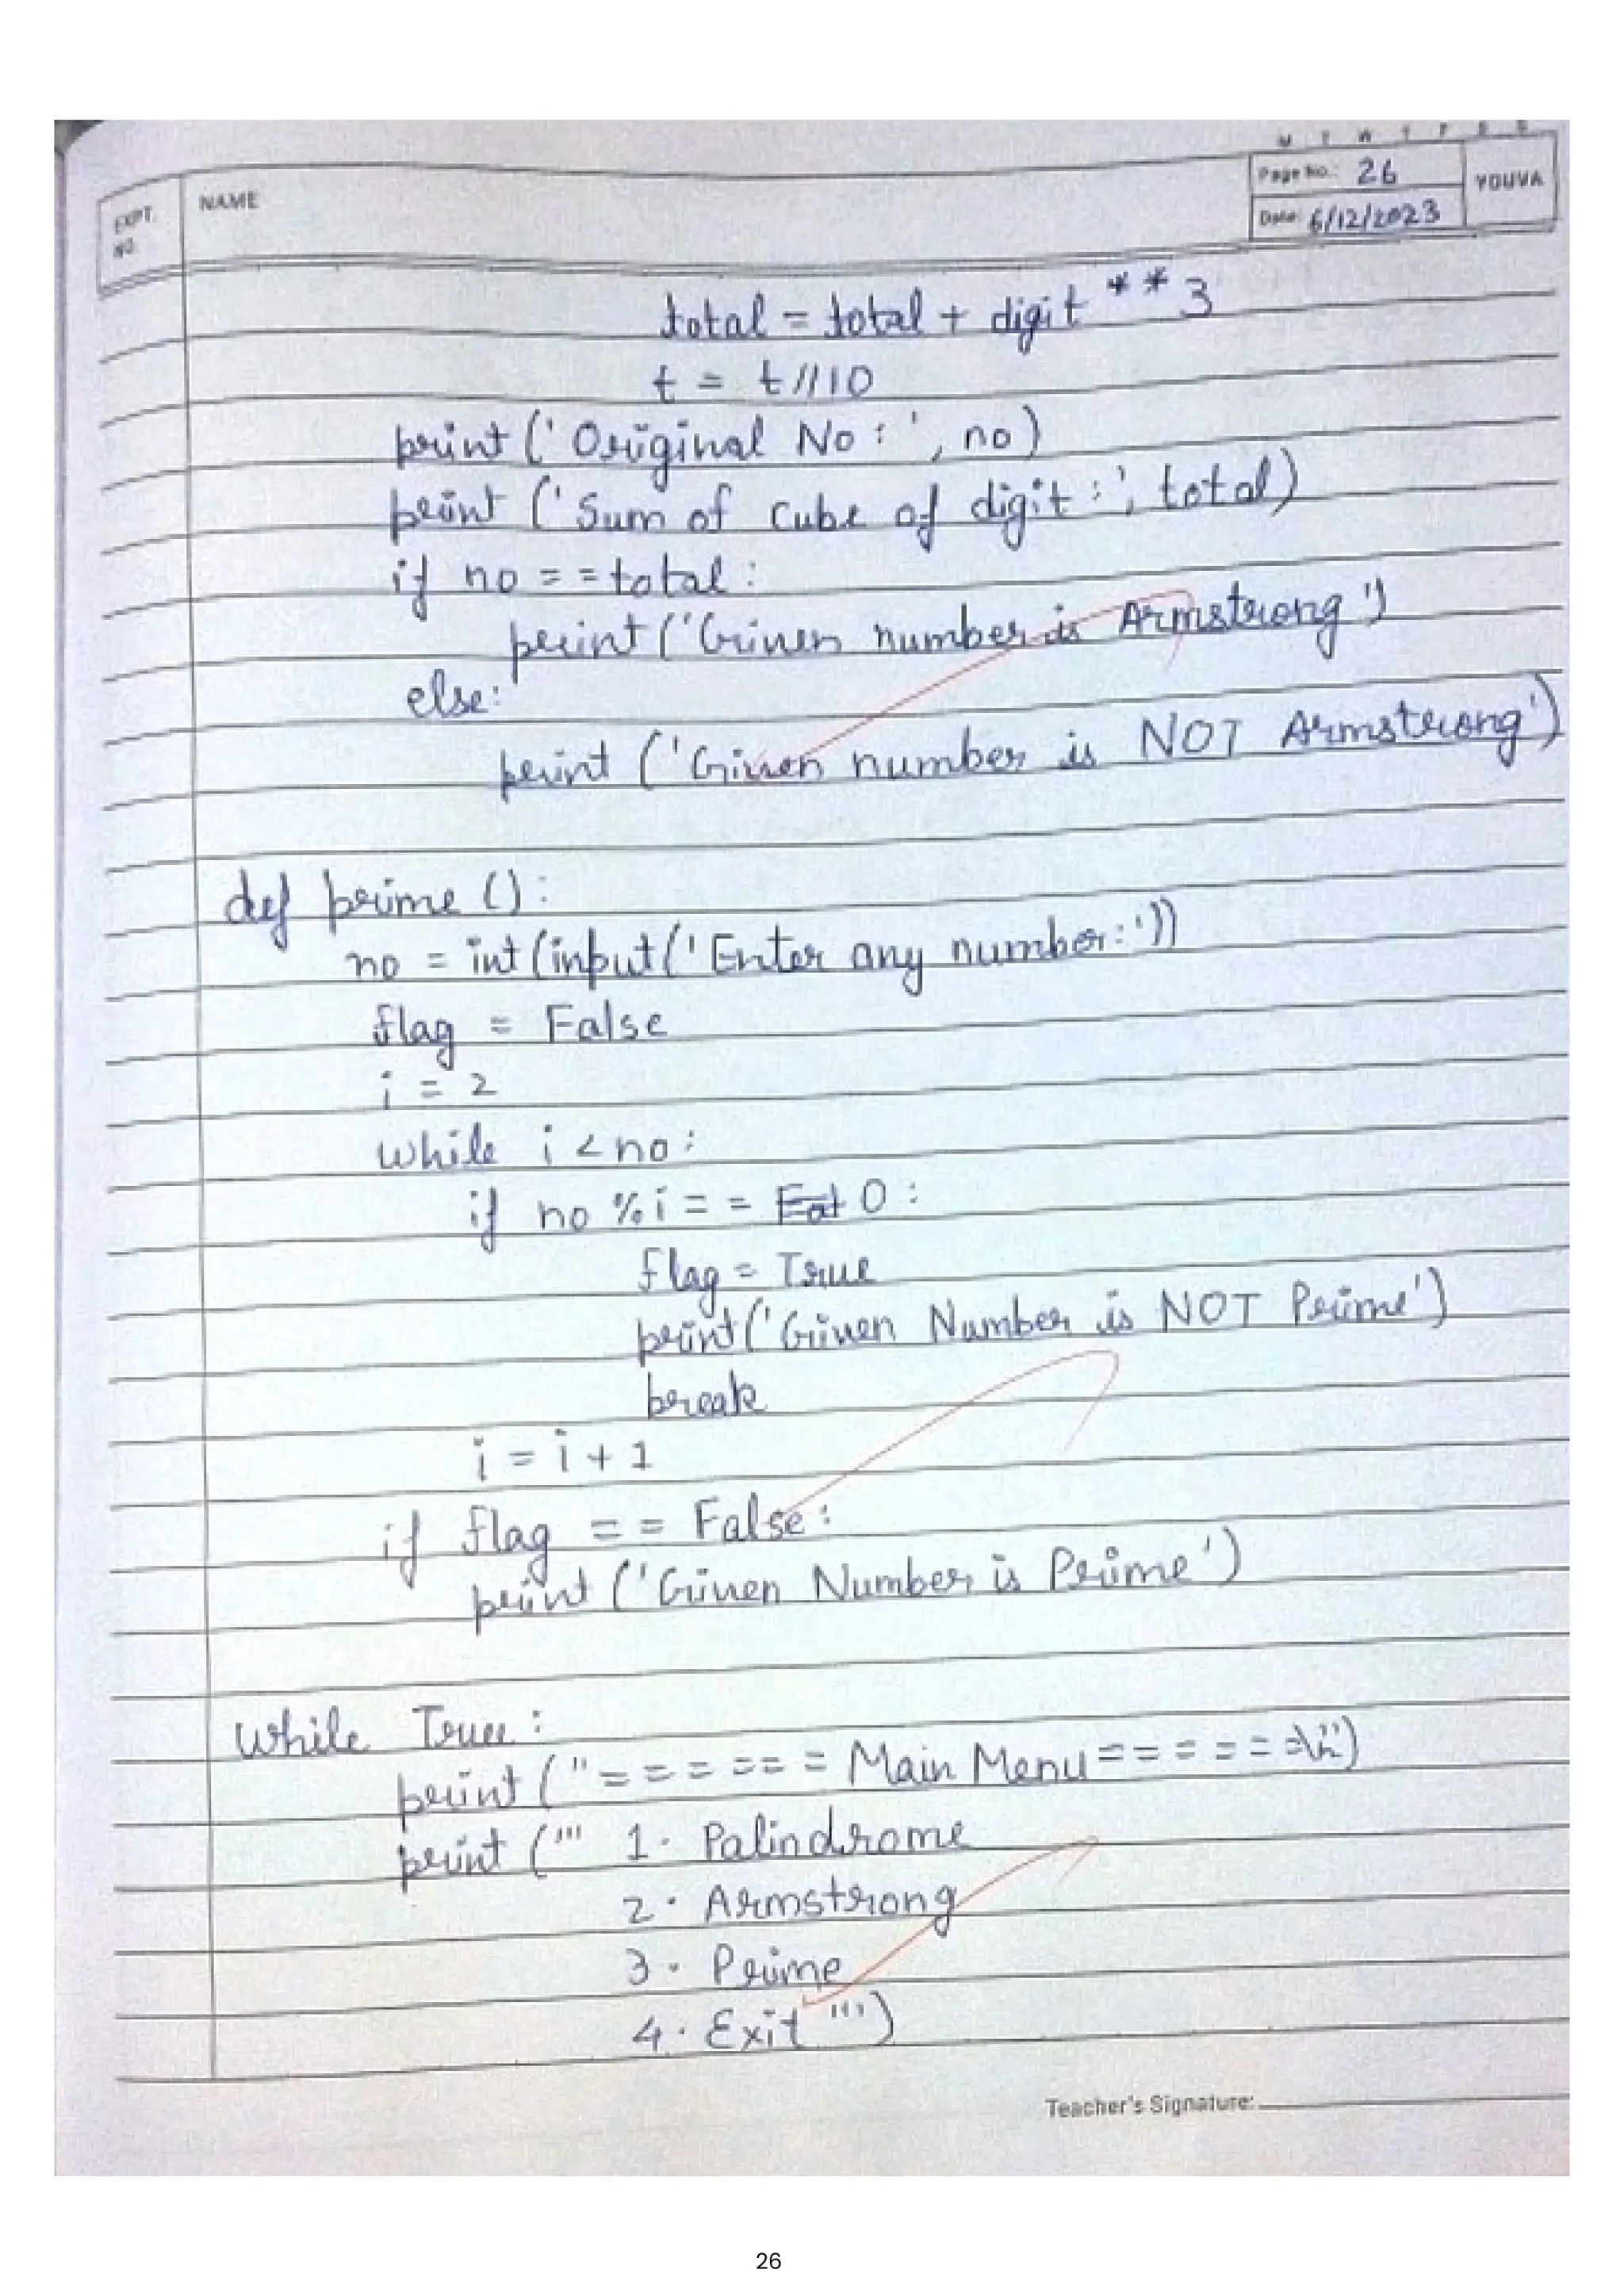 M T W T F S S
Page No.: 26
YOUVA
EXPT. NO.
NAME
Date: 6/12/2023
total = total + digit ** 3
t = t//10
print ('Original No : ', no)
print ('Sum of cube of digit :', total)
if no == total :
print ('Given number is Armstrong')
else:
print ('Given number is NOT Armstrong')
def prime () :
no = int(input('Enter any number: '))
flag = False
i = 2
while i < no :
if no % i == 0 :
flag = True
print('Given Number is NOT Prime')
break
i = i + 1
if flag == False :
print ('Given Number is Prime')
while True :
print ("====== Main Menu ======\n")
print (''' 1. Palindrome
2. Armstrong
3. Prime
4. Exit ''')
Teacher's Signature:
26